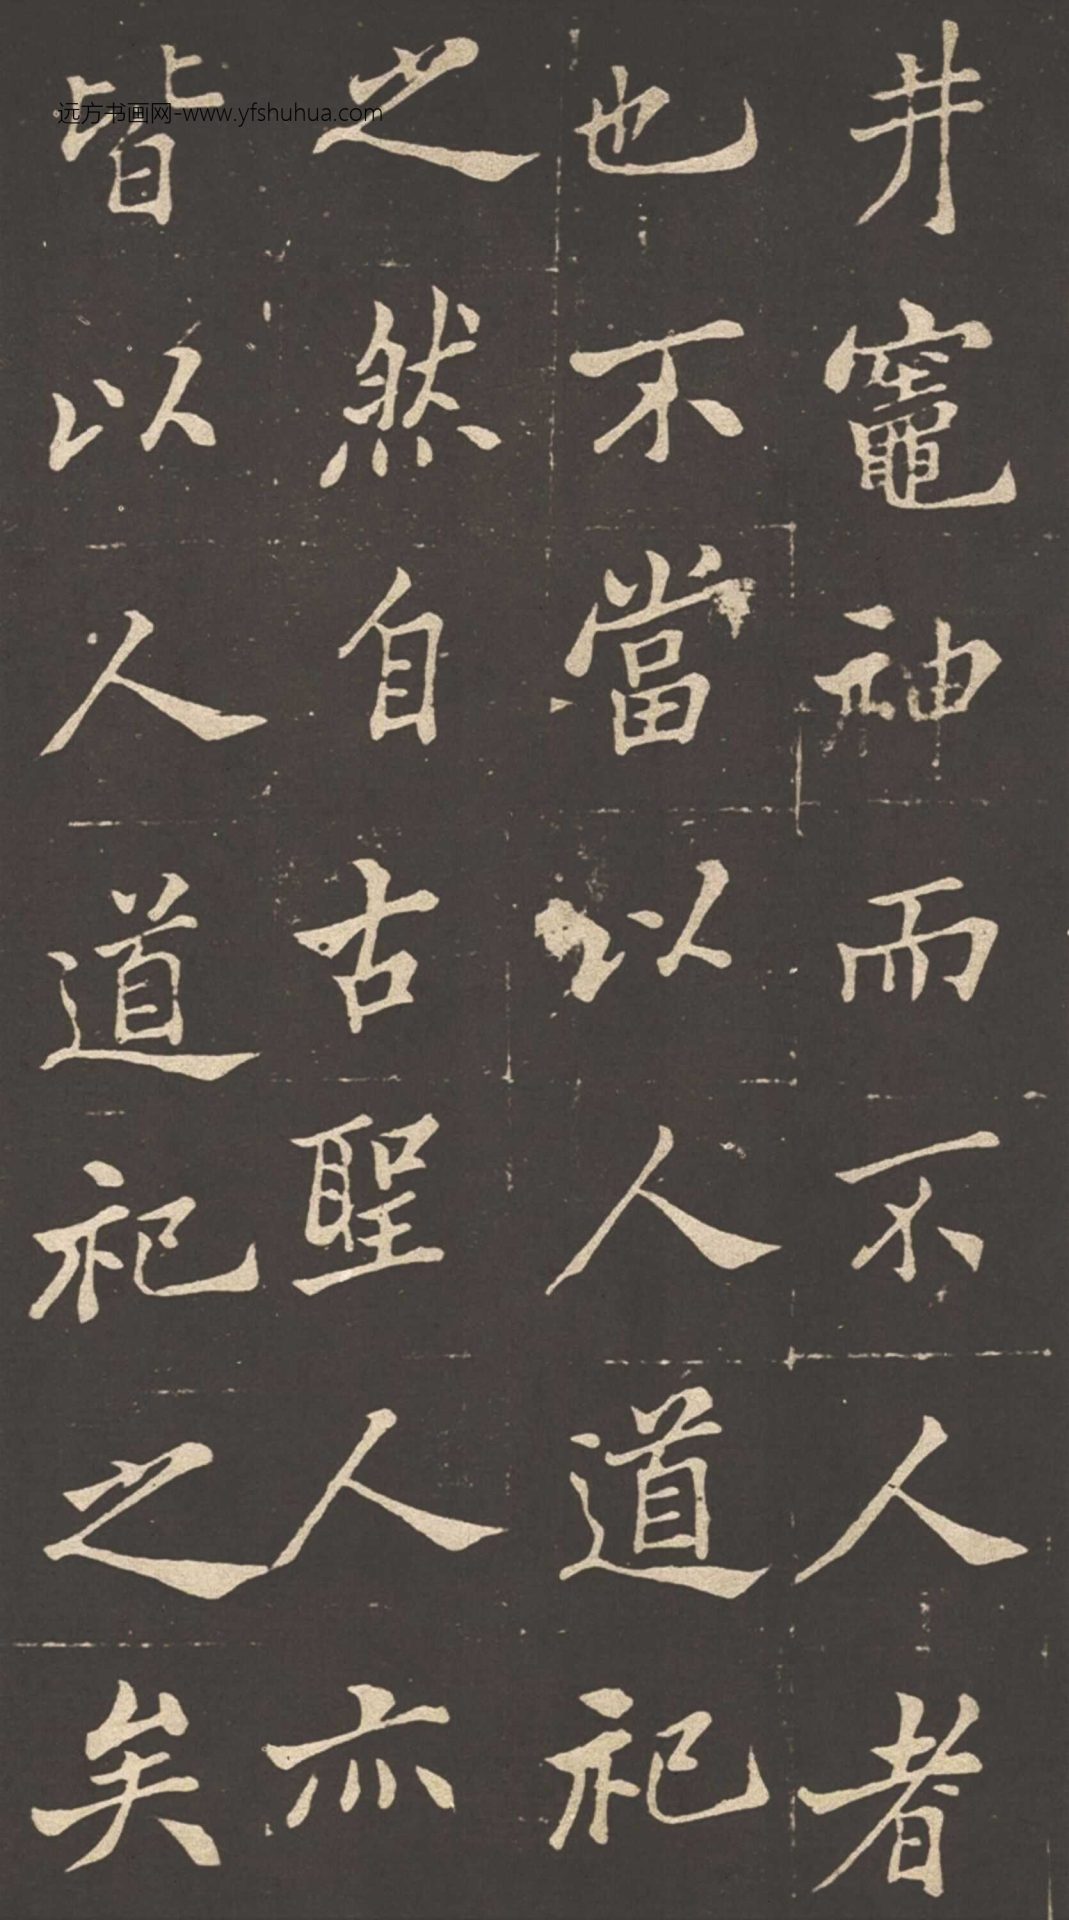 井竈神而不人者
也不當以人道祀
之然自古聖人亦
皆以人道祀之矣
远方书画网-www.yfshuhua.com